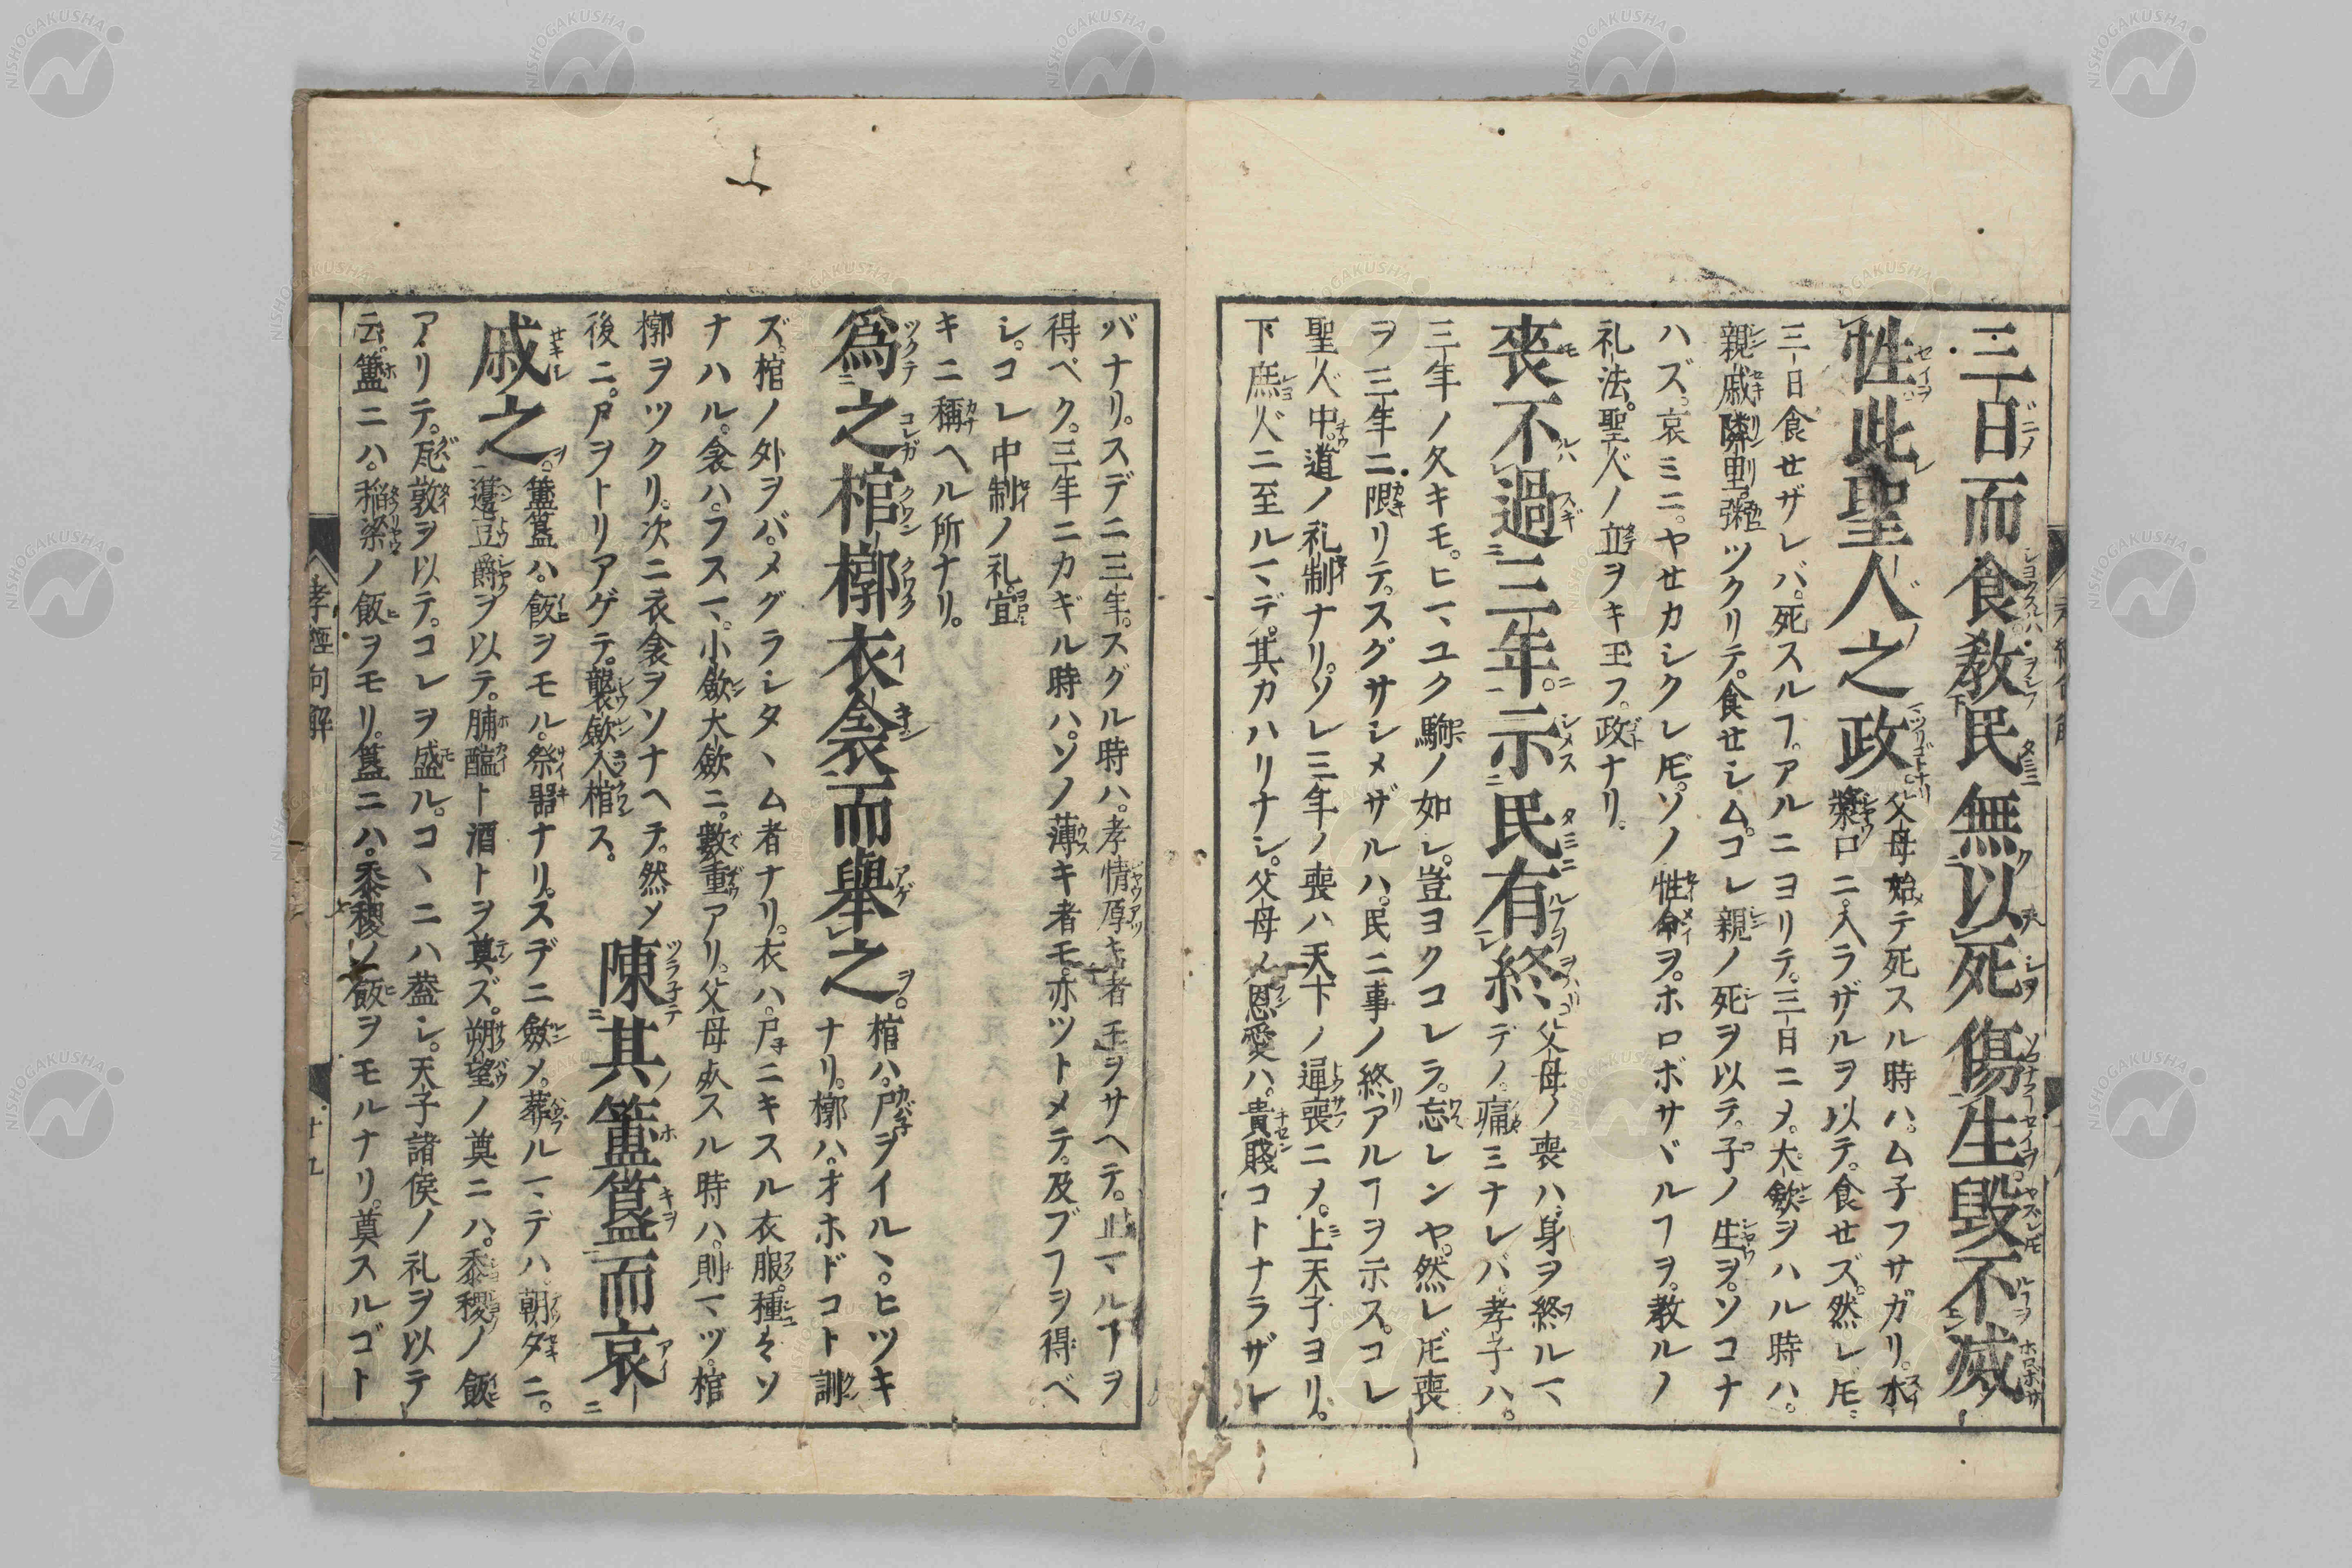 三日而食教民無以死傷生毀不滅
性此聖人之政父母始テ死スル時ハ。ム子フサガリ。水
漿口ニ。入ラザルヲ以テ。食せズ。然レ𪜈
三日食せザレバ。死スルヿ。アルニヨリテ。三日ニメ。大斂ヲハル時ハ。
親戚隣里粥ツクリテ。食せシム。コレ親ノ死ヲ以テ。子ノ生ヲ。ソコナ
ハズ。哀ミニ。ヤせカシクレ𪜈。ソノ性命ヲ。ホロボサヾルヿヲ。教ルノ
礼法。聖人ノ立ヲキ玉フ。政ナリ。
喪不過三年。示民有終父母ノ喪ハ。身ヲ終ルマ
デノ。痛ミナレバ。孝子ハ。
三年ノ久キモ。ヒマユク駒ノ如シ。豈ヨクコレラ。忘レンヤ。然レ𪜈喪
ヲ三年ニ限リテ。スグサシメザルハ。民ニ事ノ終アルヿヲ示ス。コレ
聖人中道ノ礼制ナリ。ソレ三年ノ喪ハ天下ノ運喪ニメ。上天子ヨリ。
下庶人ニ至ルマデ。其カハリナシ。父母ノ恩愛ハ。貴賤コトナラザレ
バナリ。スデニ三年。スグル時ハ。孝情厚キ者モヲサヘテ。止マルヿヲ
得ベク。三年ニカギル時ハ。ソノ薄キ者モ。亦ツトメテ。及ブヿヲ得ベ
シ。コレ中制ノ礼宜
キニ稱ヘル所ナリ。
爲之棺槨衣衾而舉之。棺ハ。尸ヲイルヽ。ヒツキ
ナリ。槨ハ。オホドコト訓
ズ。棺ノ外ヲバ。メグラシタヽム者ナリ。衣ハ。尸ニキスル衣服。種々ソ
ナハル。衾ハ。フスマ。小斂大斂ニ。數重アリ。父母死スル時ハ。則マヅ。棺
槨ヲツクリ。次ニ衣衾ヲソナヘテ。然メ
後ニ。尸ヲトリアゲテ。襲斂入棺ス。
陳其簠簋而哀
戚之。簠簋ハ。飯ヲモル。祭器ナリ。スデニ斂メ。葬ルマデハ。朝夕ニ。
籩豆爵ヲ以テ。脯醢ト酒トヲ奠ズ。朔望ノ奠ニハ。黍稷ノ飯
アリテ。瓦敦ヲ以テ。コレヲ盛ル。コヽニハ蓋シ。天子諸侯ノ礼ヲ以テ
云。簠ニハ。稲粱ノ飯ヲモリ。簋ニハ。黍稷ノ飯ヲモルナリ。奠スルゴト
孝經句解
十九